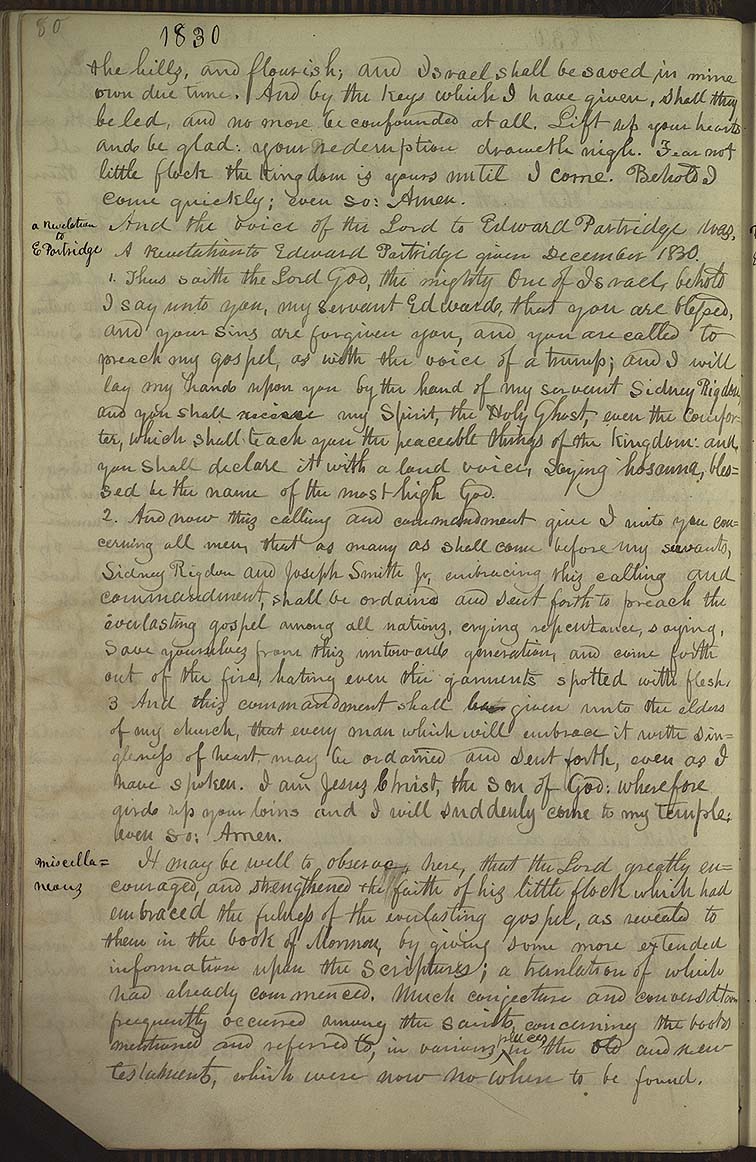 80
1830
the hills, and flourish; and Israel shall be saved in mine
own due time. And by the keys which I have given, shall they
be led, and no more be confounded at all. Lift up your hearts
and be glad: your redemption draweth nigh. Fear not
little flock the kingdom is yours until I come. Behold I
come quickly; even so: Amen.
a Revelation
to
E Partridge
And the voice of the Lord to Edward Partridge was,
A Revelation to Edward Partridge given December 1830.
1. Thus saith the Lord God, the mighty One of Israel, behold
I say unto you, my servant Edward, that you are blessed,
and your sins are forgiven you, and you are called to
preach my gospel, as with the voice of a trump; and I will
lay my hand upon you by the hand of my servant Sidney Rigdon,
and you shall receive my Spirit, the Holy Ghost, even the Comfor-
ter, which shall teach you the peaceable things of the kingdom: and
you shall declare it with a loud voice, saying hosanna, bles=
sed be the name of the most high God.
2. And now this calling and commandment give I unto you con=
cerning all men, that as many as shall come before my servants,
Sidney Rigdon and Joseph Smith Jr, embracing this calling and
commandment, shall be ordained and sent forth to preach the
everlasting gospel among all nations, crying repentance, saying,
Save yourselves from this untoward generation, and come forth
out of the fire, hating even the garments spotted with flesh.
3 And this commandment shall be given unto the elders
of my church, that every man which will embrace it with sin=
gleness of heart may be ordained and sent forth, even as I
have spoken. I am Jesus Christ, the Son of God: wherefore
gird up your loins and I will suddenly come to my temple;
even so: Amen.
miscella=
neous
It may be well to observe, here, that the Lord greatly en=
couraged, and strengthened the faith of his little flock which had
embraced the fulness of the everlasting gospel, as revealed to
them in the book of Mormon, by giving some more extended
information upon the Scriptures; a translation of which
had already commenced. Much conjecture and conversation
frequently occurred among the saints, concerning the books
mentioned and referred to, in various places in the old and new
testaments, which were now no where to be found.